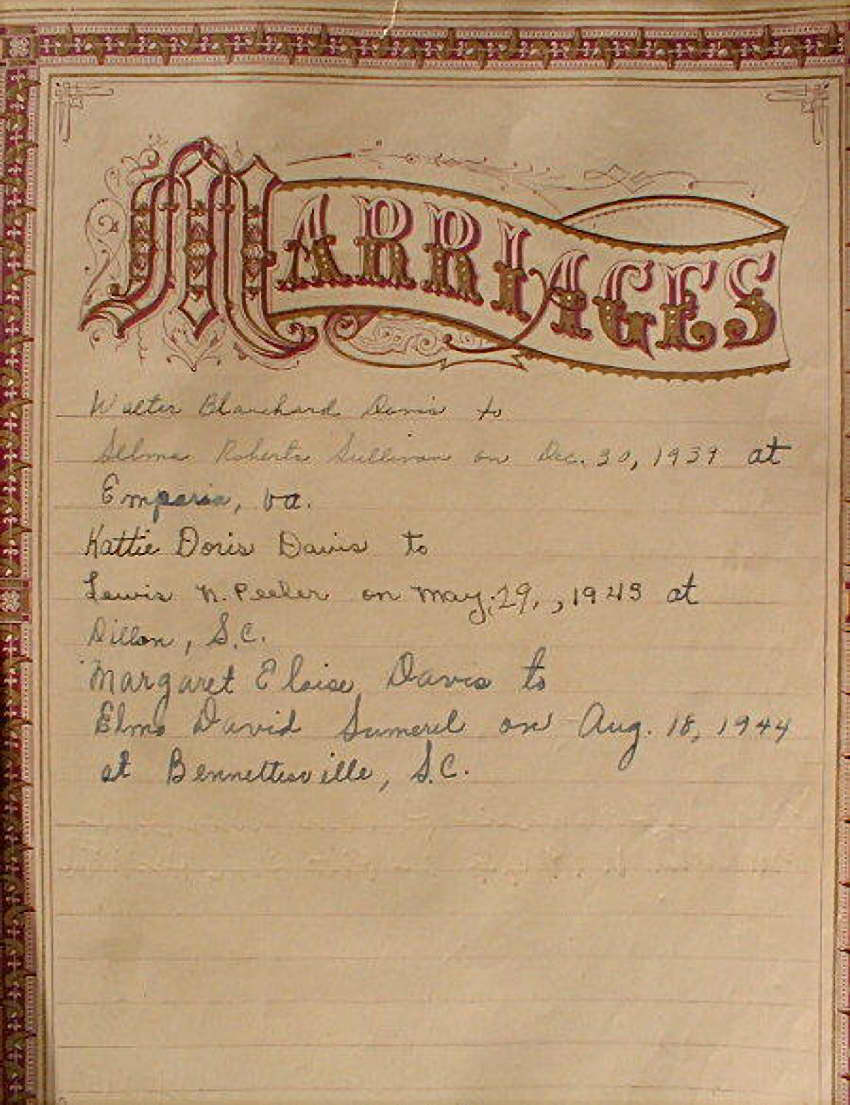 MARRIAGES
Walter Blanchard Davis to
Selma Roberta Sullivan on Dec. 30, 1939 at
Emporia, Va.
Kattie Doris Davis to
Lewis N. Peeler on May, 29, , 1943 at
Dillon, S.C.
Margaret Eloise Davis to
Elmo David Sumerel on Aug. 18, 1944
at Bennettesville, S.C.